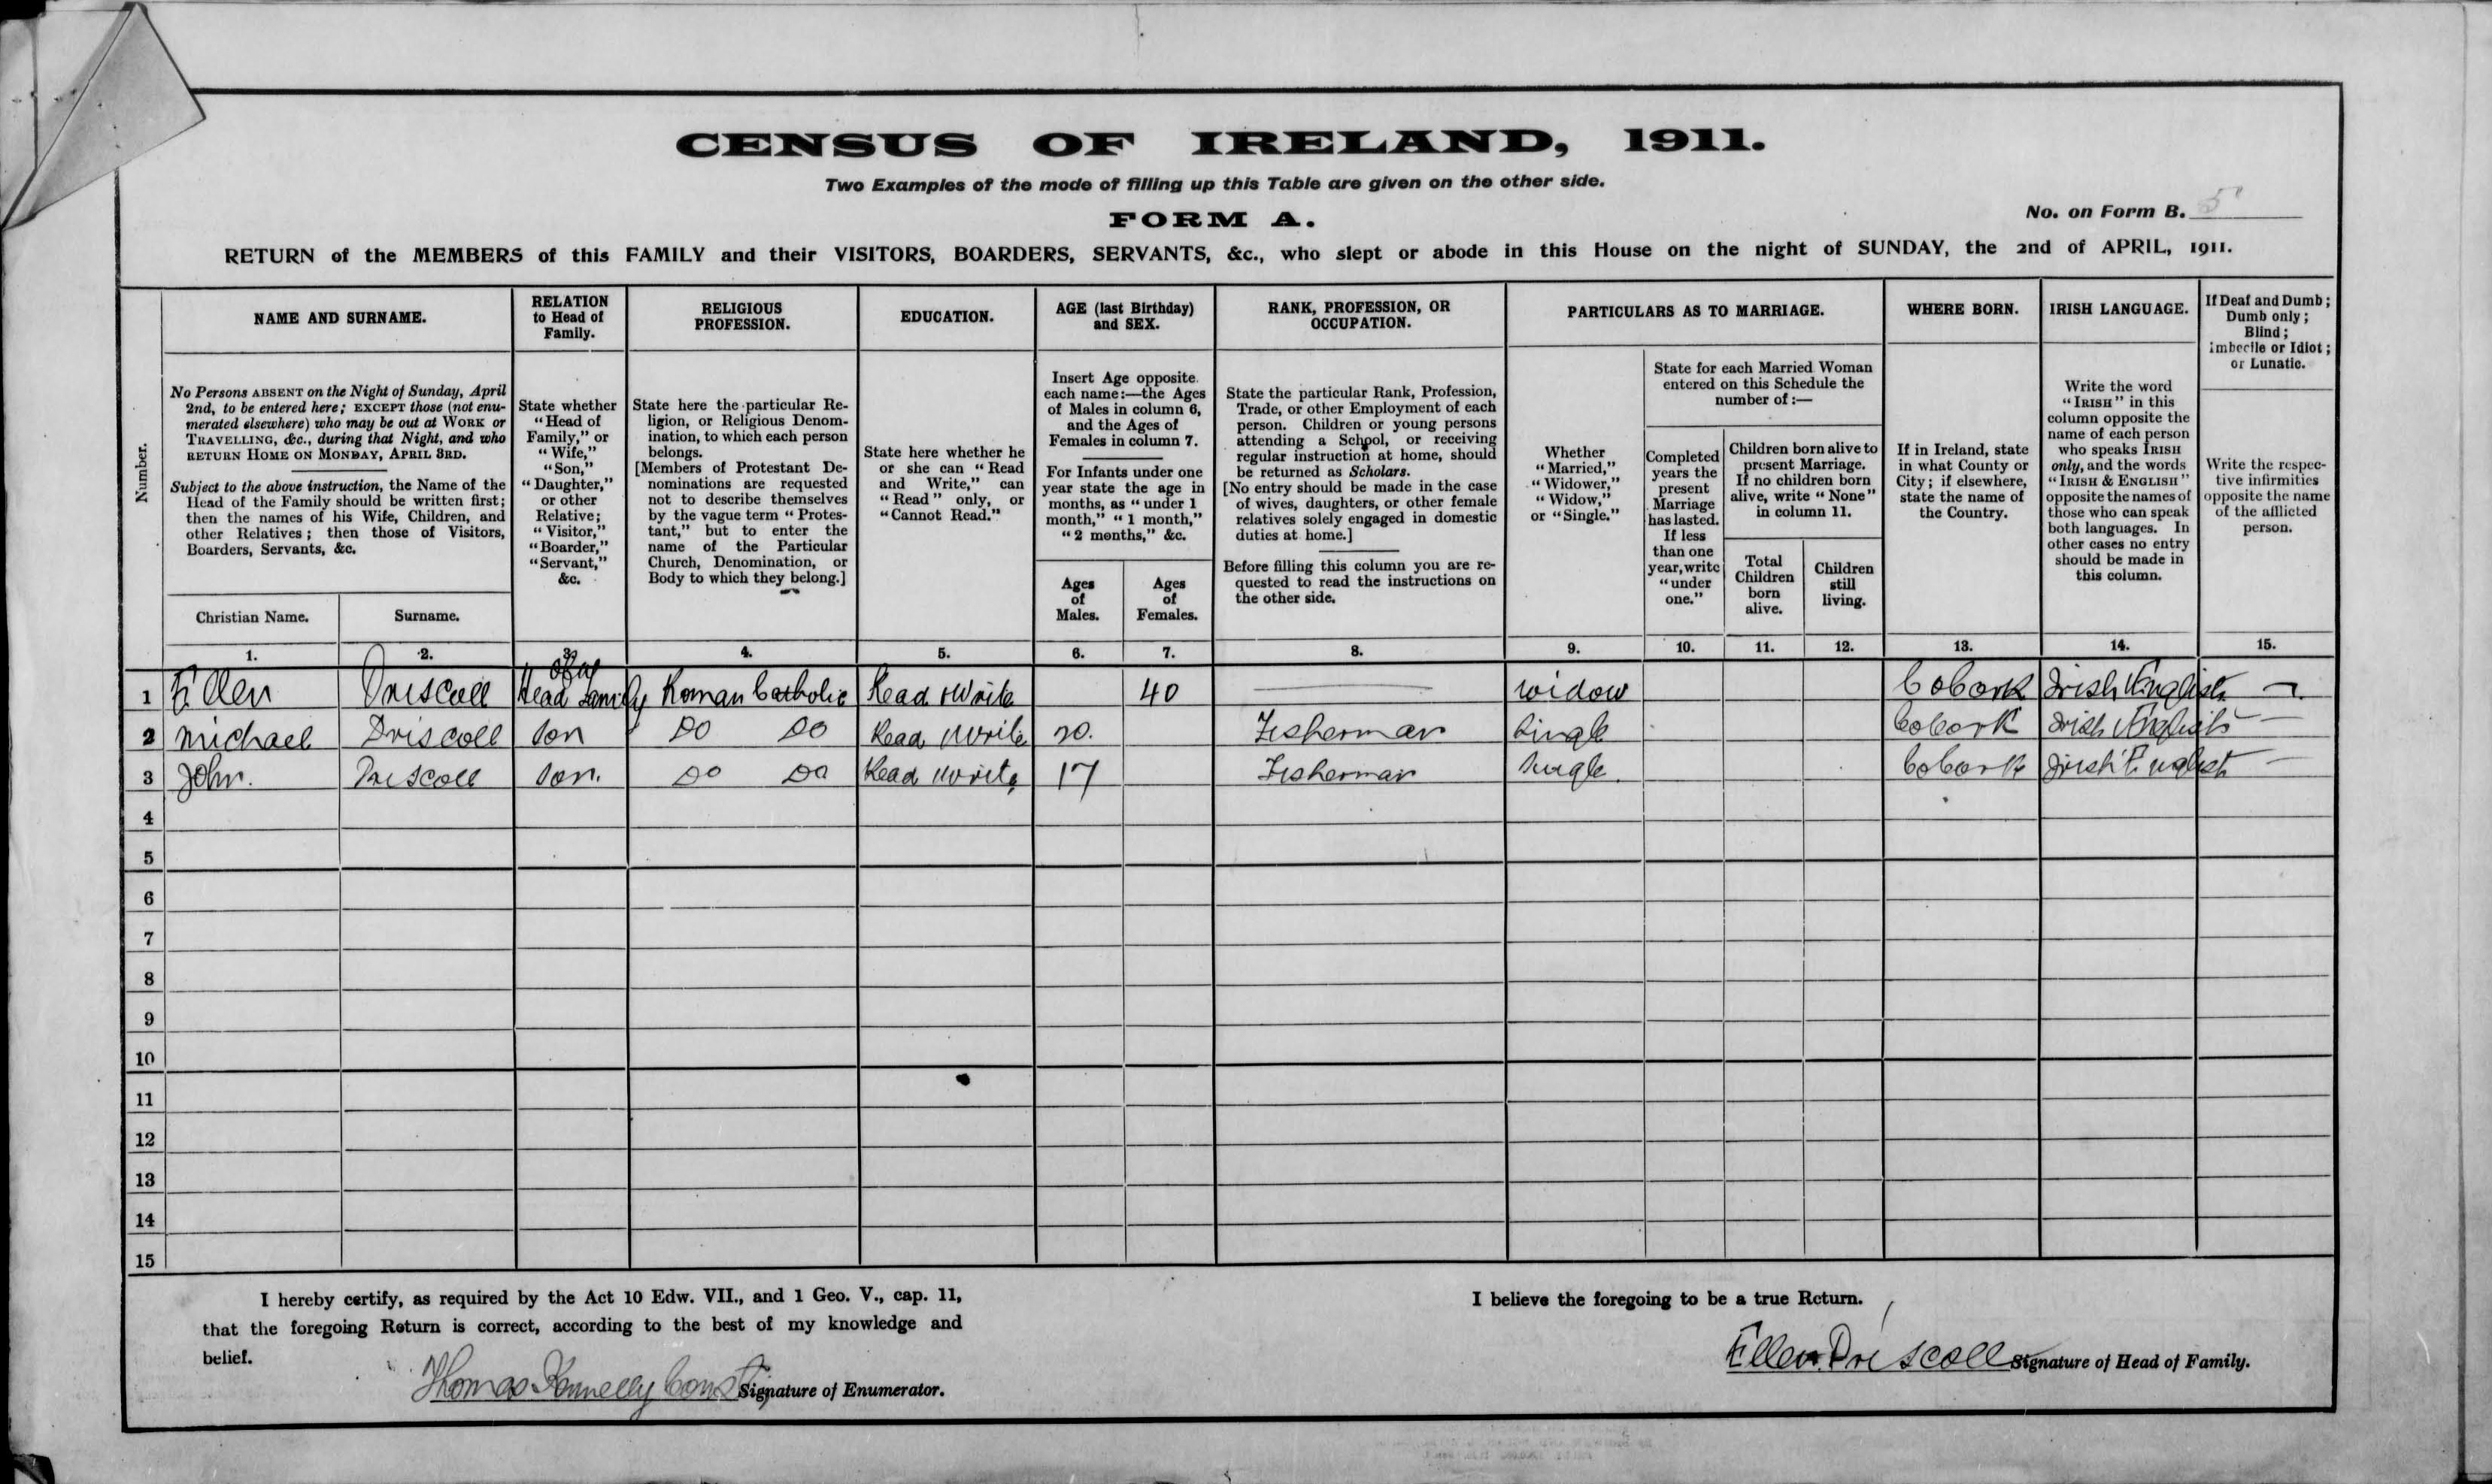 CENSUS OF IRELAND, 1911.
Two Examples of the mode of filling up this Table are given on the other side.
FORM A.
No. on Form B. 5
RETURN of the MEMBERS of this FAMILY and their VISITORS, BOARDERS, SERVANTS, &c., who slept or abode in this House on the night of SUNDAY, the 2nd of APRIL, 1911.
Number.
NAME AND SURNAME.
No Persons ABSENT on the Night of Sunday, April
2nd, to be entered here; EXCEPT those (not enu-
merated elsewhere) who may be out at WORK or
TRAVELLING, &c., during that Night, and who
RETURN HOME ON MONDAY, APRIL 3RD.
Subject to the above instruction, the Name of the
Head of the Family should be written first;
then the names of his Wife, Children, and
other Relatives; then those of Visitors,
Boarders, Servants, &c.
Christian Name.
Surname.
RELATION
to Head of
Family.
State whether
"Head of
Family," or
"Wife,"
"Son,"
"Daughter,"
or other
Relative;
"Visitor,"
"Boarder,"
"Servant,"
&c.
RELIGIOUS
PROFESSION.
State here the particular Re-
ligion, or Religious Denom-
ination, to which each person
belongs.
[Members of Protestant De-
nominations are requested
not to describe themselves
by the vague term "Protes-
tant," but to enter the
name of the Particular
Church, Denomination, or
Body to which they belong.]
EDUCATION.
State here whether he
or she can "Read
and Write," can
"Read" only, or
"Cannot Read."
AGE (last Birthday)
and SEX.
Insert Age opposite
each name:—the Ages
of Males in column 6,
and the Ages of
Females in column 7.
For Infants under one
year state the age in
months, as "under 1
month," "1 month,"
"2 months," &c.
Ages
of
Males.
Ages
of
Females.
RANK, PROFESSION, OR
OCCUPATION.
State the particular Rank, Profession,
Trade, or other Employment of each
person. Children or young persons
attending a School, or receiving
regular instruction at home, should
be returned as Scholars.
[No entry should be made in the case
of wives, daughters, or other female
relatives solely engaged in domestic
duties at home.]
Before filling this column you are re-
quested to read the instructions on
the other side.
PARTICULARS AS TO MARRIAGE.
Whether
"Married,"
"Widower,"
"Widow,"
or "Single."
State for each Married Woman
entered on this Schedule the
number of:—
Completed
years the
present
Marriage
has lasted.
If less
than one
year, write
"under
one."
Children born alive to
present Marriage.
If no children born
alive, write "None"
in column 11.
Total
Children
born
alive.
Children
still
living.
WHERE BORN.
If in Ireland, state
in what County or
City; if elsewhere,
state the name of
the Country.
IRISH LANGUAGE.
Write the word
"IRISH" in this
column opposite the
name of each person
who speaks IRISH
only, and the words
"IRISH & ENGLISH"
opposite the names of
those who can speak
both languages. In
other cases no entry
should be made in
this column.
If Deaf and Dumb;
Dumb only;
Blind;
Imbecile or Idiot;
or Lunatic.
Write the respec-
tive infirmities
opposite the name
of the afflicted
person.
1. 2. 3. 4. 5. 6. 7. 8. 9. 10. 11. 12. 13. 14. 15.
1 Ellen Driscoll Head of Family Roman Catholic Read & Write 40 — widow Co Cork Irish & English —
2 Michael Driscoll Son Do Do Read & Write 20. Fisherman Single Co Cork Irish & English —
3 John. Driscoll Son. Do Do Read & Write 17 Fisherman Single. Co Cork Irish & English —
4
5
6
7
8
9
10
11
12
13
14
15
I hereby certify, as required by the Act 10 Edw. VII., and 1 Geo. V., cap. 11,
that the foregoing Return is correct, according to the best of my knowledge and
belief.
Thomas Kennelly Const. Signature of Enumerator.
I believe the foregoing to be a true Return.
Ellen Driscoll Signature of Head of Family.